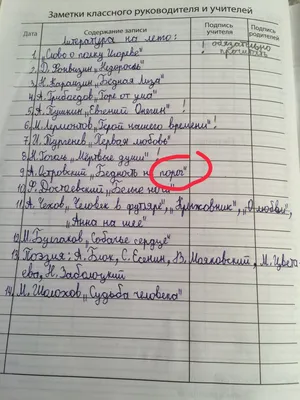 Заметки классного руководителя и учителей
Дата
Содержание записи
Подпись учителя
Подпись родителей
Литература на лето:
! обязательно
прочитать
1. „Слово о полку Игореве"
2. Д. Фонвизин „Недоросль"
3. Н. Карамзин „Бедная Лиза"
4. А. Грибоедов „Горе от ума"
5. А. Пушкин „Евгений Онегин" !
6. М. Лермонтов „Герой нашего времени"!
7. И. Тургенев „Первая любовь"
8. Н. Гоголь „Мёртвые души" !
9. А. Островский „Бедность не порог"
10. Ф. Достоевский „Белые ночи"
11. А. Чехов „Человек в футляре", „Крыжовник", „О любви",
„Анна на шее"
12. М. Булгаков „Собачье сердце"
13. Поэзия: А. Блок, С. Есенин, В. Маяковский, М. Цвета-
ева, Н. Заболоцкий
14. М. Шолохов „Судьба человека"